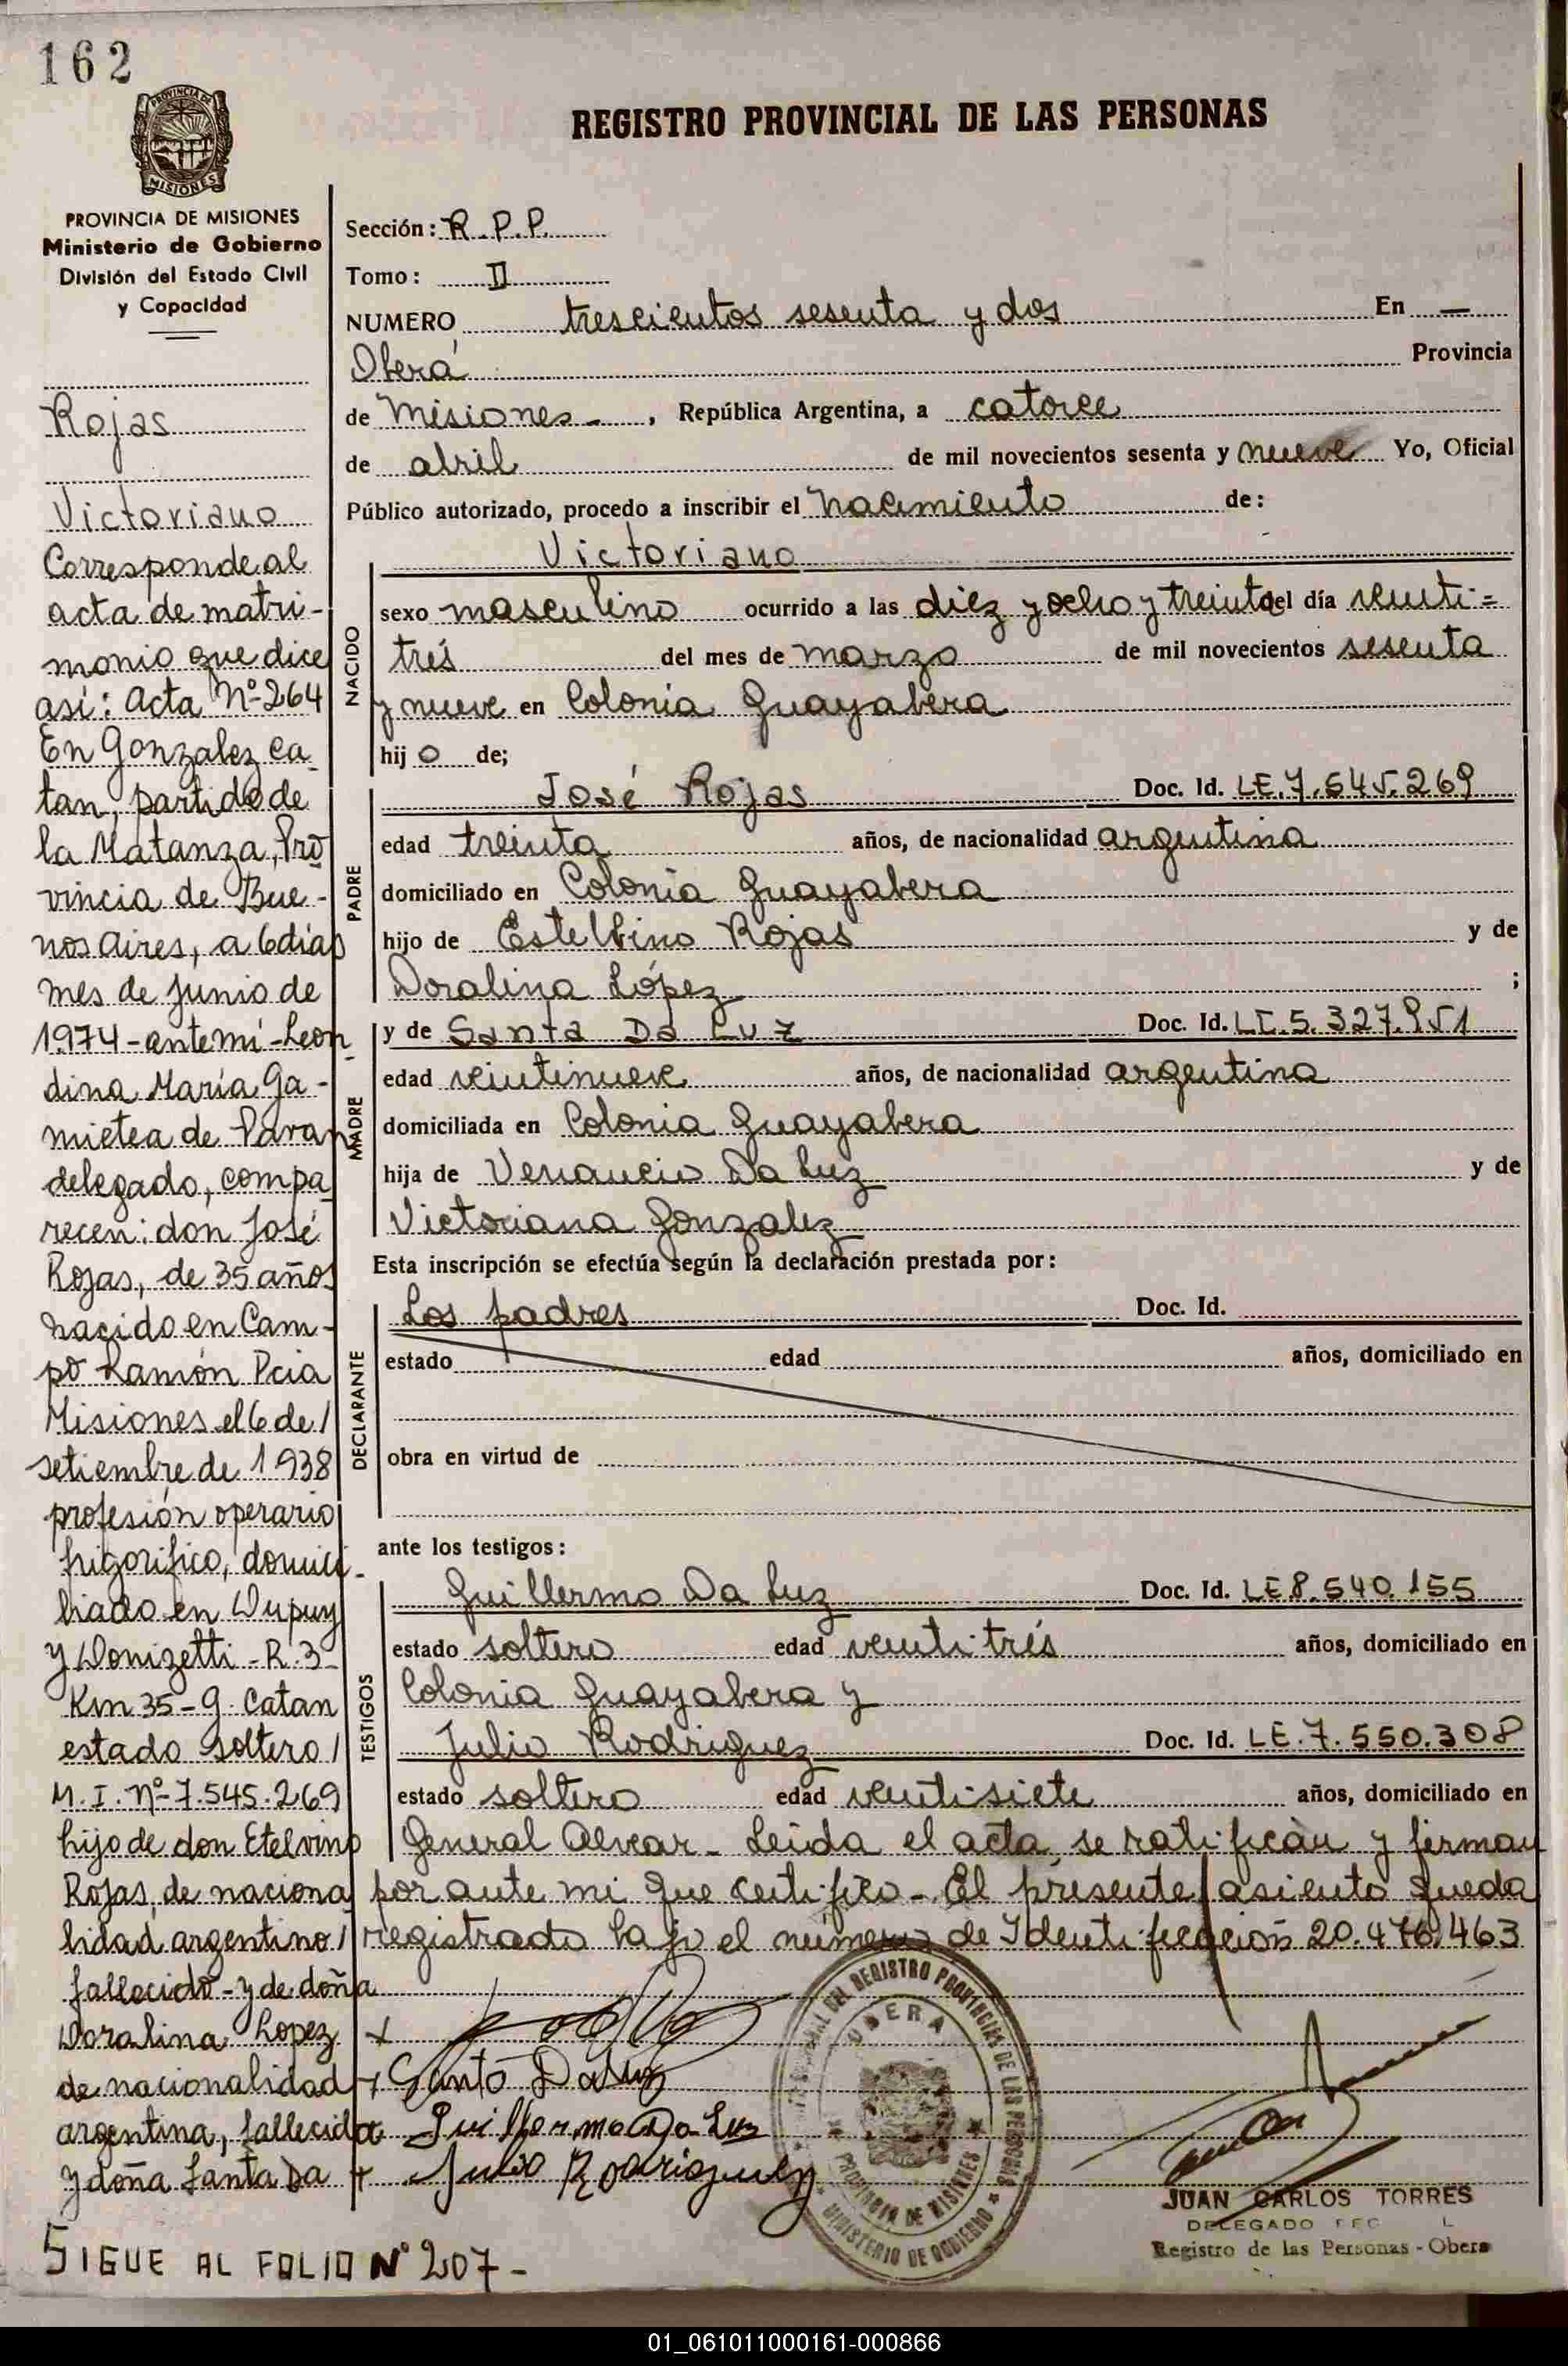 162
REGISTRO PROVINCIAL DE LAS PERSONAS
PROVINCIA DE
MISIONES
PROVINCIA DE MISIONES
Ministerio de Gobierno
División del Estado Civil
y Capacidad
Rojas
Victoriano
Corresponde al
acta de matri-
monio que dice
asi: Acta Nº 264
En Gonzalez Ca
tan, partido de
la Matanza, Pro
vincia de Bue-
nos Aires, a 6 días
mes de Junio de
1974 - ante mi - Leon
dina María Ga-
mietea de Pavan
delegado, compa
recen: don José
Rojas, de 35 años
nacido en Cam-
po Ramón Pcia
Misiones el 6 de /
setiembre de 1938
profesión operario
frigorifico, domici-
liado en Dupuy
y Donizetti - R.3 -
Km 35 - G. Catan
estado soltero /
M.I. Nº 7.545.269
hijo de don Etelvino
Rojas, de naciona
lidad argentino /
fallecido - y de doña
Doralina Lopez
de nacionalidad
argentina, fallecida
y doña Santa Da
SIGUE AL FOLIO Nº 207 -
Sección: R.P.P.
Tomo: II
NUMERO trescientos sesenta y dos En —
Oberá Provincia
de Misiones -, República Argentina, a catorce
de abril de mil novecientos sesenta y nueve Yo, Oficial
Público autorizado, procedo a inscribir el nacimiento de:
NACIDO
Victoriano
sexo masculino ocurrido a las diez y ocho y treinta del día veinti =
trés del mes de marzo de mil novecientos sesenta
y nueve en Colonia Guayabera
hijo de;
PADRE
José Rojas Doc. Id. LE.7.545.269
edad treinta años, de nacionalidad argentina
domiciliado en Colonia Guayabera
hijo de Estelbino Rojas y de
Doralina López ;
MADRE
y de Santa Da Luz Doc. Id. LC.5.327.951
edad veintinueve años, de nacionalidad argentina
domiciliada en Colonia Guayabera
hija de Venancio Da Luz y de
Victoriana Gonzalez
Esta inscripción se efectúa según la declaración prestada por:
DECLARANTE
Los padres Doc. Id.
estado edad años, domiciliado en
obra en virtud de
ante los testigos:
TESTIGOS
Guillermo Da Luz Doc. Id. LE 8.540.155
estado soltero edad veintitrés años, domiciliado en
Colonia Guayabera y
Julio Rodriguez Doc. Id. LE.7.550.308
estado soltero edad ventisiete años, domiciliado en
General Alvear - Leida el acta, se ratifican y firman
por ante mi que certifico - El presente asiento queda
registrado bajo el número de Identificación 20.476.463
Santa Da Luz
Guillermo Da Luz
Julio Rodriguez
DEL REGISTRO PROVINCIAL DE LAS PERSONAS
OBERA
PROVINCIA DE MISIONES
MINISTERIO DE GOBIERNO
JUAN CARLOS TORRES
DELEGADO
Registro de las Personas - Obera
01_061011000161-000866